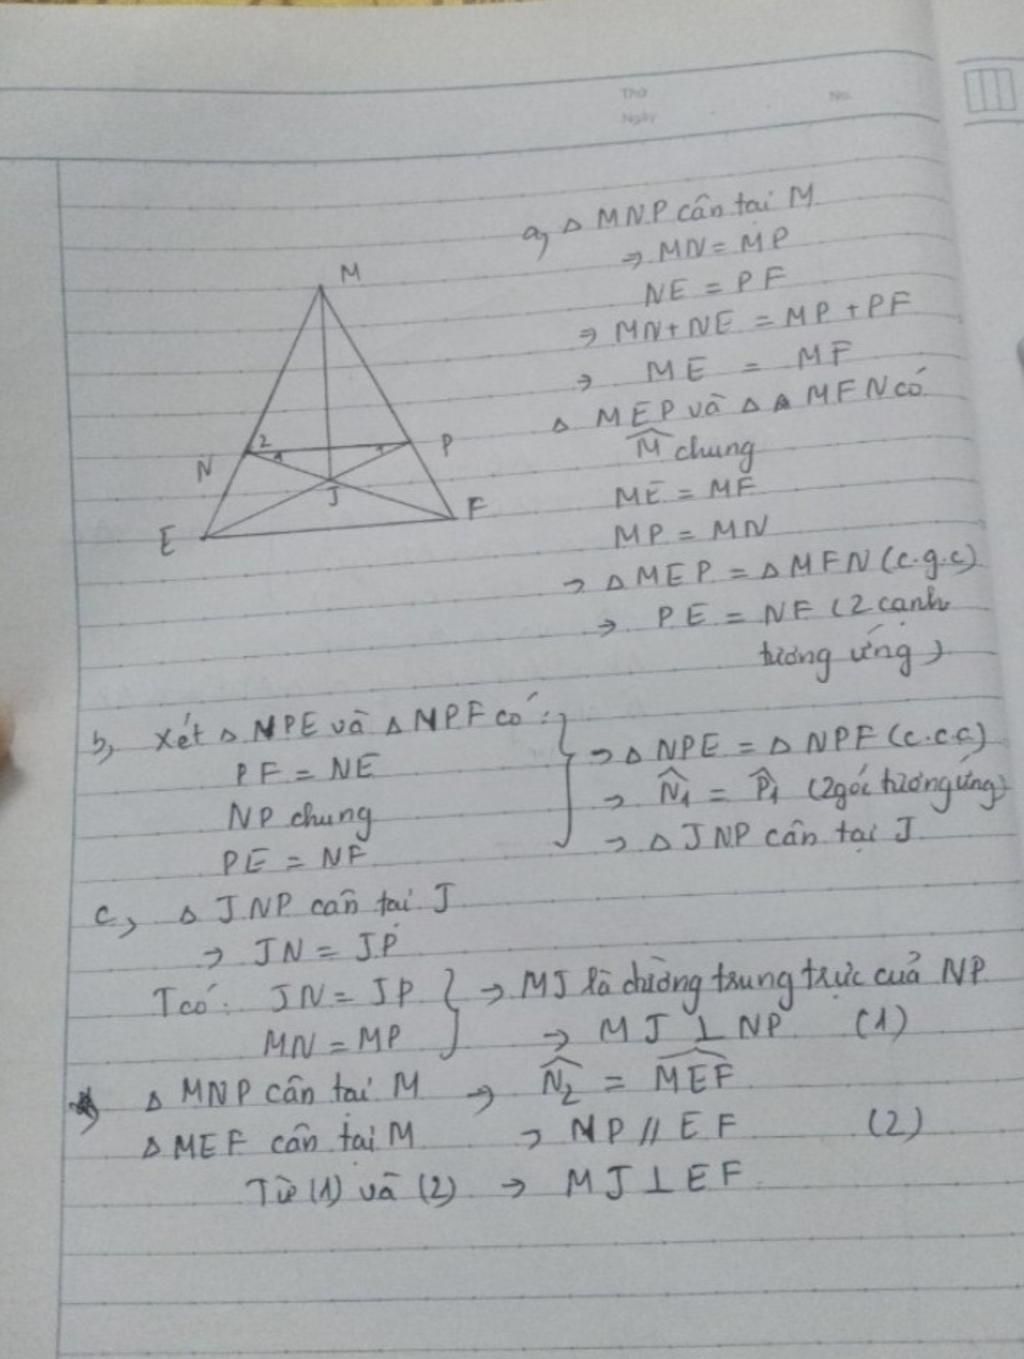 Thứ
No.
Ngày
a, Δ MNP cân tại M
⇒ MN = MP
NE = PF
⇒ MN + NE = MP + PF
⇒ ME = MF
Δ MEP và Δ MFN có
M̂ chung
ME = MF
MP = MN
⇒ Δ MEP = Δ MFN (c.g.c)
⇒ PE = NF (2 cạnh
tương ứng)
M
2
N
1
1
P
J
E
F
b, Xét Δ NPE và Δ NPF có:
PF = NE
NP chung
PE = NF
} ⇒ Δ NPE = Δ NPF (c.c.c)
⇒ N̂₁ = P̂₁ (2 góc tương ứng)
⇒ Δ JNP cân tại J
c, Δ JNP cân tại J
⇒ JN = JP
Tcó: JN = JP } ⇒ MJ là đường trung trực của NP
MN = MP ⇒ MJ ⊥ NP (1)
Δ MNP cân tại M ⇒ N̂₂ = M͡EF
Δ MEF cân tại M ⇒ NP // EF (2)
Từ (1) và (2) ⇒ MJ ⊥ EF